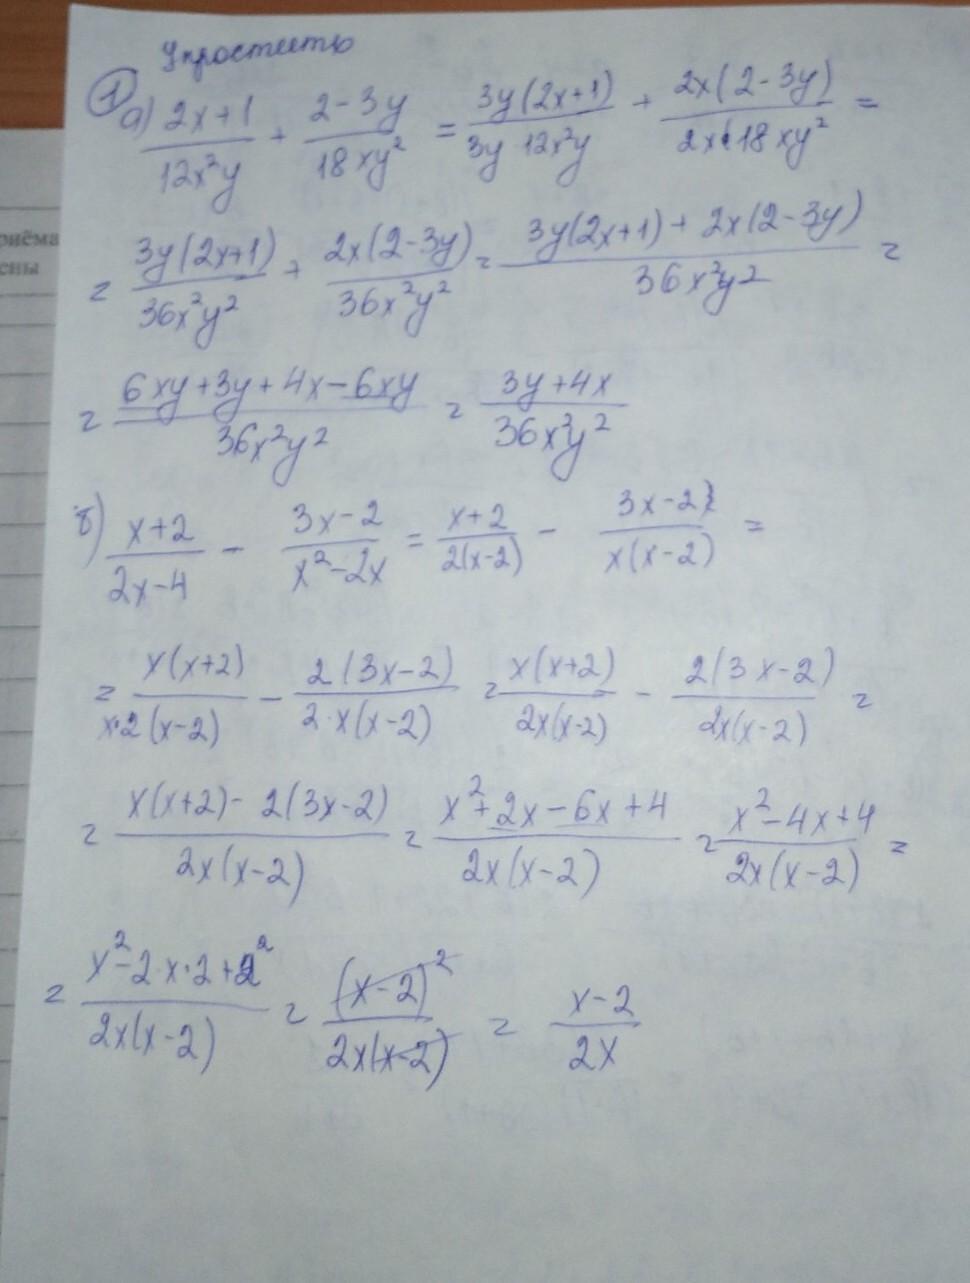 Упростить
① а) (2x+1)/(12x²y) + (2-3y)/(18xy²) = 3y(2x+1)/(3y 12x²y) + 2x(2-3y)/(2x·18xy²) =
= 3y(2x+1)/(36x²y²) + 2x(2-3y)/(36x²y²) = (3y(2x+1) + 2x(2-3y))/(36x²y²) =
= (6xy+3y+4x-6xy)/(36x²y²) = (3y+4x)/(36x²y²)
б) (x+2)/(2x-4) - (3x-2)/(x²-2x) = (x+2)/(2(x-2)) - (3x-2)/(x(x-2)) =
= x(x+2)/(x·2(x-2)) - 2(3x-2)/(2·x(x-2)) = x(x+2)/(2x(x-2)) - 2(3x-2)/(2x(x-2)) =
= (x(x+2)-2(3x-2))/(2x(x-2)) = (x²+2x-6x+4)/(2x(x-2)) = (x²-4x+4)/(2x(x-2)) =
= (x²-2·x·2+2²)/(2x(x-2)) = (x-2)²/(2x(x-2)) = (x-2)/(2x)
риёма
ены